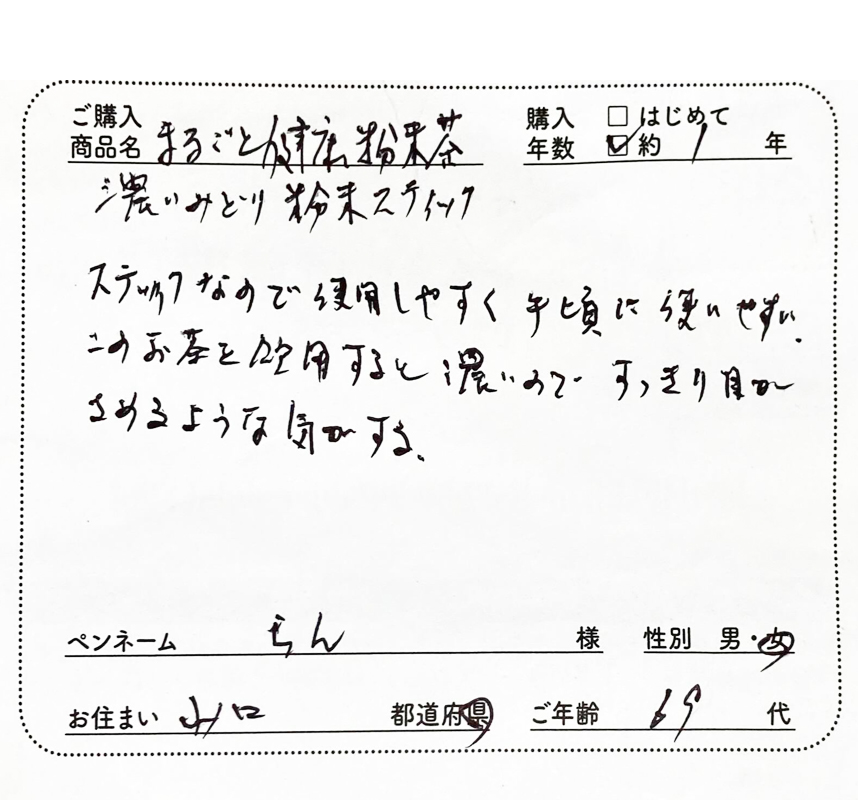 ご購入
商品名 まるごと健康粉末茶
購入 □ はじめて
年数 ☑ 約 1 年
濃いみどり 粉末スティック
スティックなので使用しやすく 午頃に使いやすい。
このお茶を飲用すると濃いので すっきり目が
さめるような気がする。
ペンネーム らん 様 性別 男・女
お住まい 山口 都道府県 ご年齢 69 代